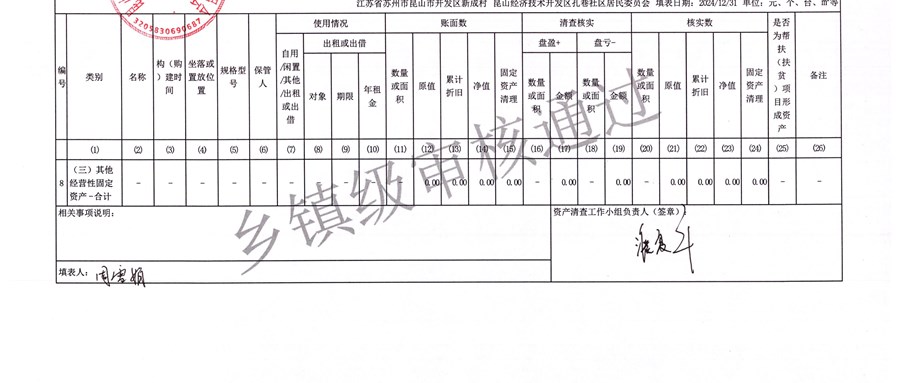 江苏省苏州市昆山市开发区新成村 昆山经济技术开发区孔巷社区居民委员会 填表日期：2024/12/31 单位：元、个、台、㎡等
3205830690687
编号 类别 名称 构（购）建时间 坐落或置放位置 规格型号 保管人 使用情况 账面数 清查核实 核实数 是否为帮扶（扶贫）项目形成资产 备注
自用/闲置/其他/出租或出借 出租或出借 数量或面积 原值 累计折旧 净值 固定资产清理 盘盈+ 盘亏- 数量或面积 原值 累计折旧 净值 固定资产清理
对象 期限 年租金 数量或面积 金额 数量或面积 金额
(1) (2) (3) (4) (5) (6) (7) (8) (9) (10) (11) (12) (13) (14) (15) (16) (17) (18) (19) (20) (21) (22) (23) (24) (25) (26)
8 （三）其他经营性固定资产-合计 - - - - - - - - - - 0.00 0.00 0.00 0.00 - 0.00 - 0.00 - 0.00 0.00 0.00 0.00 - -
乡镇级审核通过
相关事项说明：
资产清查工作小组负责人（签章）：
填表人：